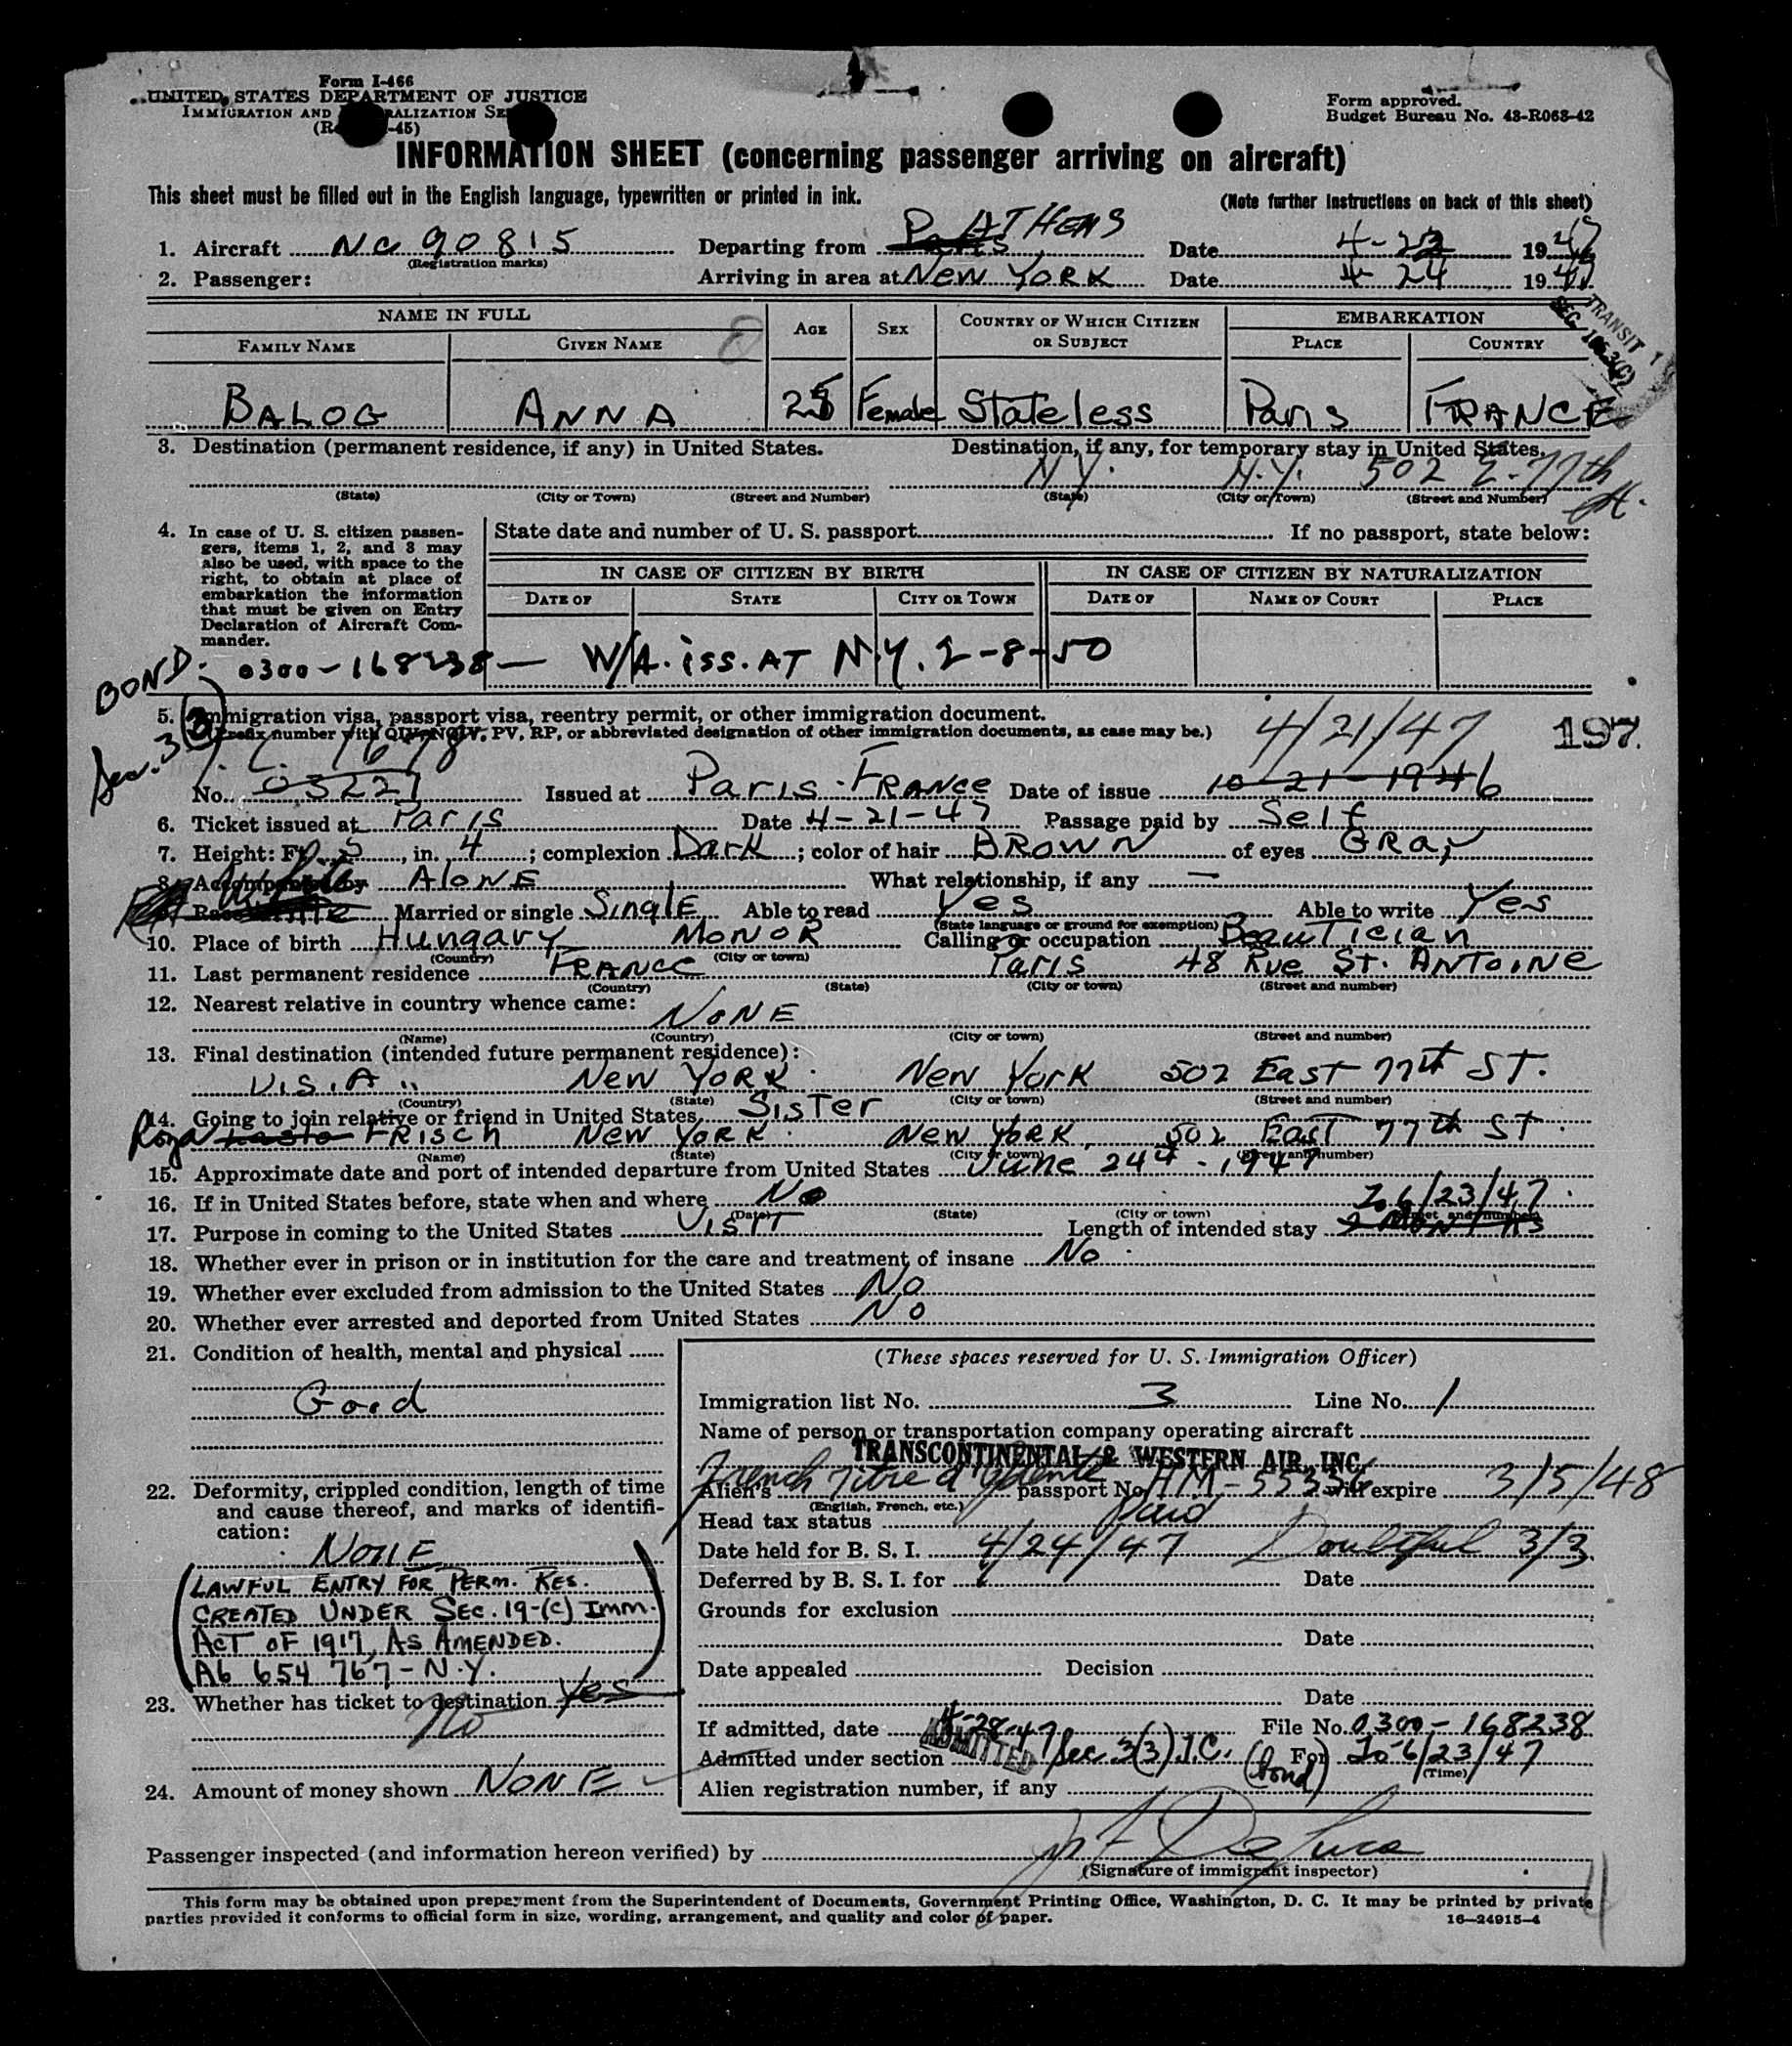 Form I-466
UNITED STATES DEPARTMENT OF JUSTICE
IMMIGRATION AND NATURALIZATION SE
(R -45)
Form approved.
Budget Bureau No. 43-R068-42
INFORMATION SHEET (concerning passenger arriving on aircraft)
This sheet must be filled out in the English language, typewritten or printed in ink.
(Note further instructions on back of this sheet)
1. Aircraft NC 90815 Departing from Paris ATHENS Date 4-22 1947
(Registration marks)
2. Passenger: Arriving in area at NEW YORK Date 4-24 1947
TRANSIT
NAME IN FULL AGE SEX COUNTRY OF WHICH CITIZEN OR SUBJECT EMBARKATION
FAMILY NAME GIVEN NAME PLACE COUNTRY
BALOG ANNA 25 Female Stateless Paris FRANCE
3. Destination (permanent residence, if any) in United States. Destination, if any, for temporary stay in United States.
N.Y. N.Y. 502 E-77th St.
(State) (City or Town) (Street and Number) (State) (City or Town) (Street and Number)
4. In case of U. S. citizen passengers, items 1, 2, and 3 may also be used, with space to the right, to obtain at place of embarkation the information that must be given on Entry Declaration of Aircraft Commander.
State date and number of U. S. passport If no passport, state below:
IN CASE OF CITIZEN BY BIRTH IN CASE OF CITIZEN BY NATURALIZATION
DATE OF STATE CITY OR TOWN DATE OF NAME OF COURT PLACE
BOND: 0300-168238 — W/A. iss. AT N.Y. 2-8-50
5. Immigration visa, passport visa, reentry permit, or other immigration document.
(Prefix number with QIV, NQIV, PV, RP, or abbreviated designation of other immigration documents, as case may be.)
Sec. 3(3) 4/21/47 197.
No. 03221 Issued at PARIS-FRANCE Date of issue 10-21-1946
6. Ticket issued at Paris Date 4-21-47 Passage paid by Self
7. Height: Ft. 5, in. 4; complexion Dark; color of hair BROWN of eyes GRAY
8. Accompanied by AlONE What relationship, if any —
Race White Married or single SinglE Able to read Yes Able to write Yes
(State language or ground for exemption)
10. Place of birth Hungary MONOR Calling or occupation BeauTician
(Country) (City or town)
11. Last permanent residence FRANCE Paris 48 Rue St. ANTOINE
(Country) (State) (City or town) (Street and number)
12. Nearest relative in country whence came: NONE
(Name) (Country) (City or town) (Street and number)
13. Final destination (intended future permanent residence):
U.S.A. NEW YORK NEW YORK 502 EAST 77th ST.
(Country) (State) (City or town) (Street and number)
14. Going to join relative or friend in United States SisTer
Roza FRISCH NEW YORK NEW YORK, 502 EAST 77th ST.
(Name) (State) (City or town) (Street and number)
15. Approximate date and port of intended departure from United States June 24th - 1947
16. If in United States before, state when and where No To 6/23/47
(Date) (State) (City or town) (Street and number)
17. Purpose in coming to the United States Visit Length of intended stay 2 MONTHS
18. Whether ever in prison or in institution for the care and treatment of insane No
19. Whether ever excluded from admission to the United States No
20. Whether ever arrested and deported from United States No
21. Condition of health, mental and physical
Good
22. Deformity, crippled condition, length of time and cause thereof, and marks of identification:
NONE
(LAWFUL ENTRY FOR PERM. RES.
CREATED UNDER SEC. 19-(C) IMM.
ACT OF 1917, AS AMENDED.
A6 654 767 - N.Y.)
23. Whether has ticket to destination Yes
No
24. Amount of money shown NONE
(These spaces reserved for U. S. Immigration Officer)
Immigration list No. 3 Line No. 1
Name of person or transportation company operating aircraft
TRANSCONTINENTAL & WESTERN AIR, INC.
Alien's French Titre d'Identité passport No. HM-55336 will expire 3/5/48
(English, French, etc.)
Head tax status Paid
Date held for B. S. I. 4/24/47 Doubtful 3/3
Deferred by B. S. I. for Date
Grounds for exclusion
Date
Date appealed Decision
Date
If admitted, date 4-28-47 File No. 0300-168238
ADMITTED
Admitted under section Sec 3(3) I.C. (bond) For To 6/23/47
(Time)
Alien registration number, if any
Passenger inspected (and information hereon verified) by
(Signature of immigrant inspector)
This form may be obtained upon prepayment from the Superintendent of Documents, Government Printing Office, Washington, D. C. It may be printed by private
parties provided it conforms to official form in size, wording, arrangement, and quality and color of paper. 16—24915-4